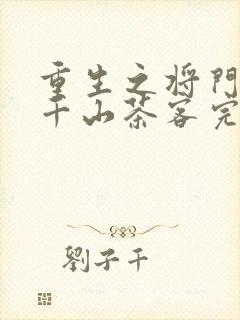 重生之将門
千山茶客完
劉子千